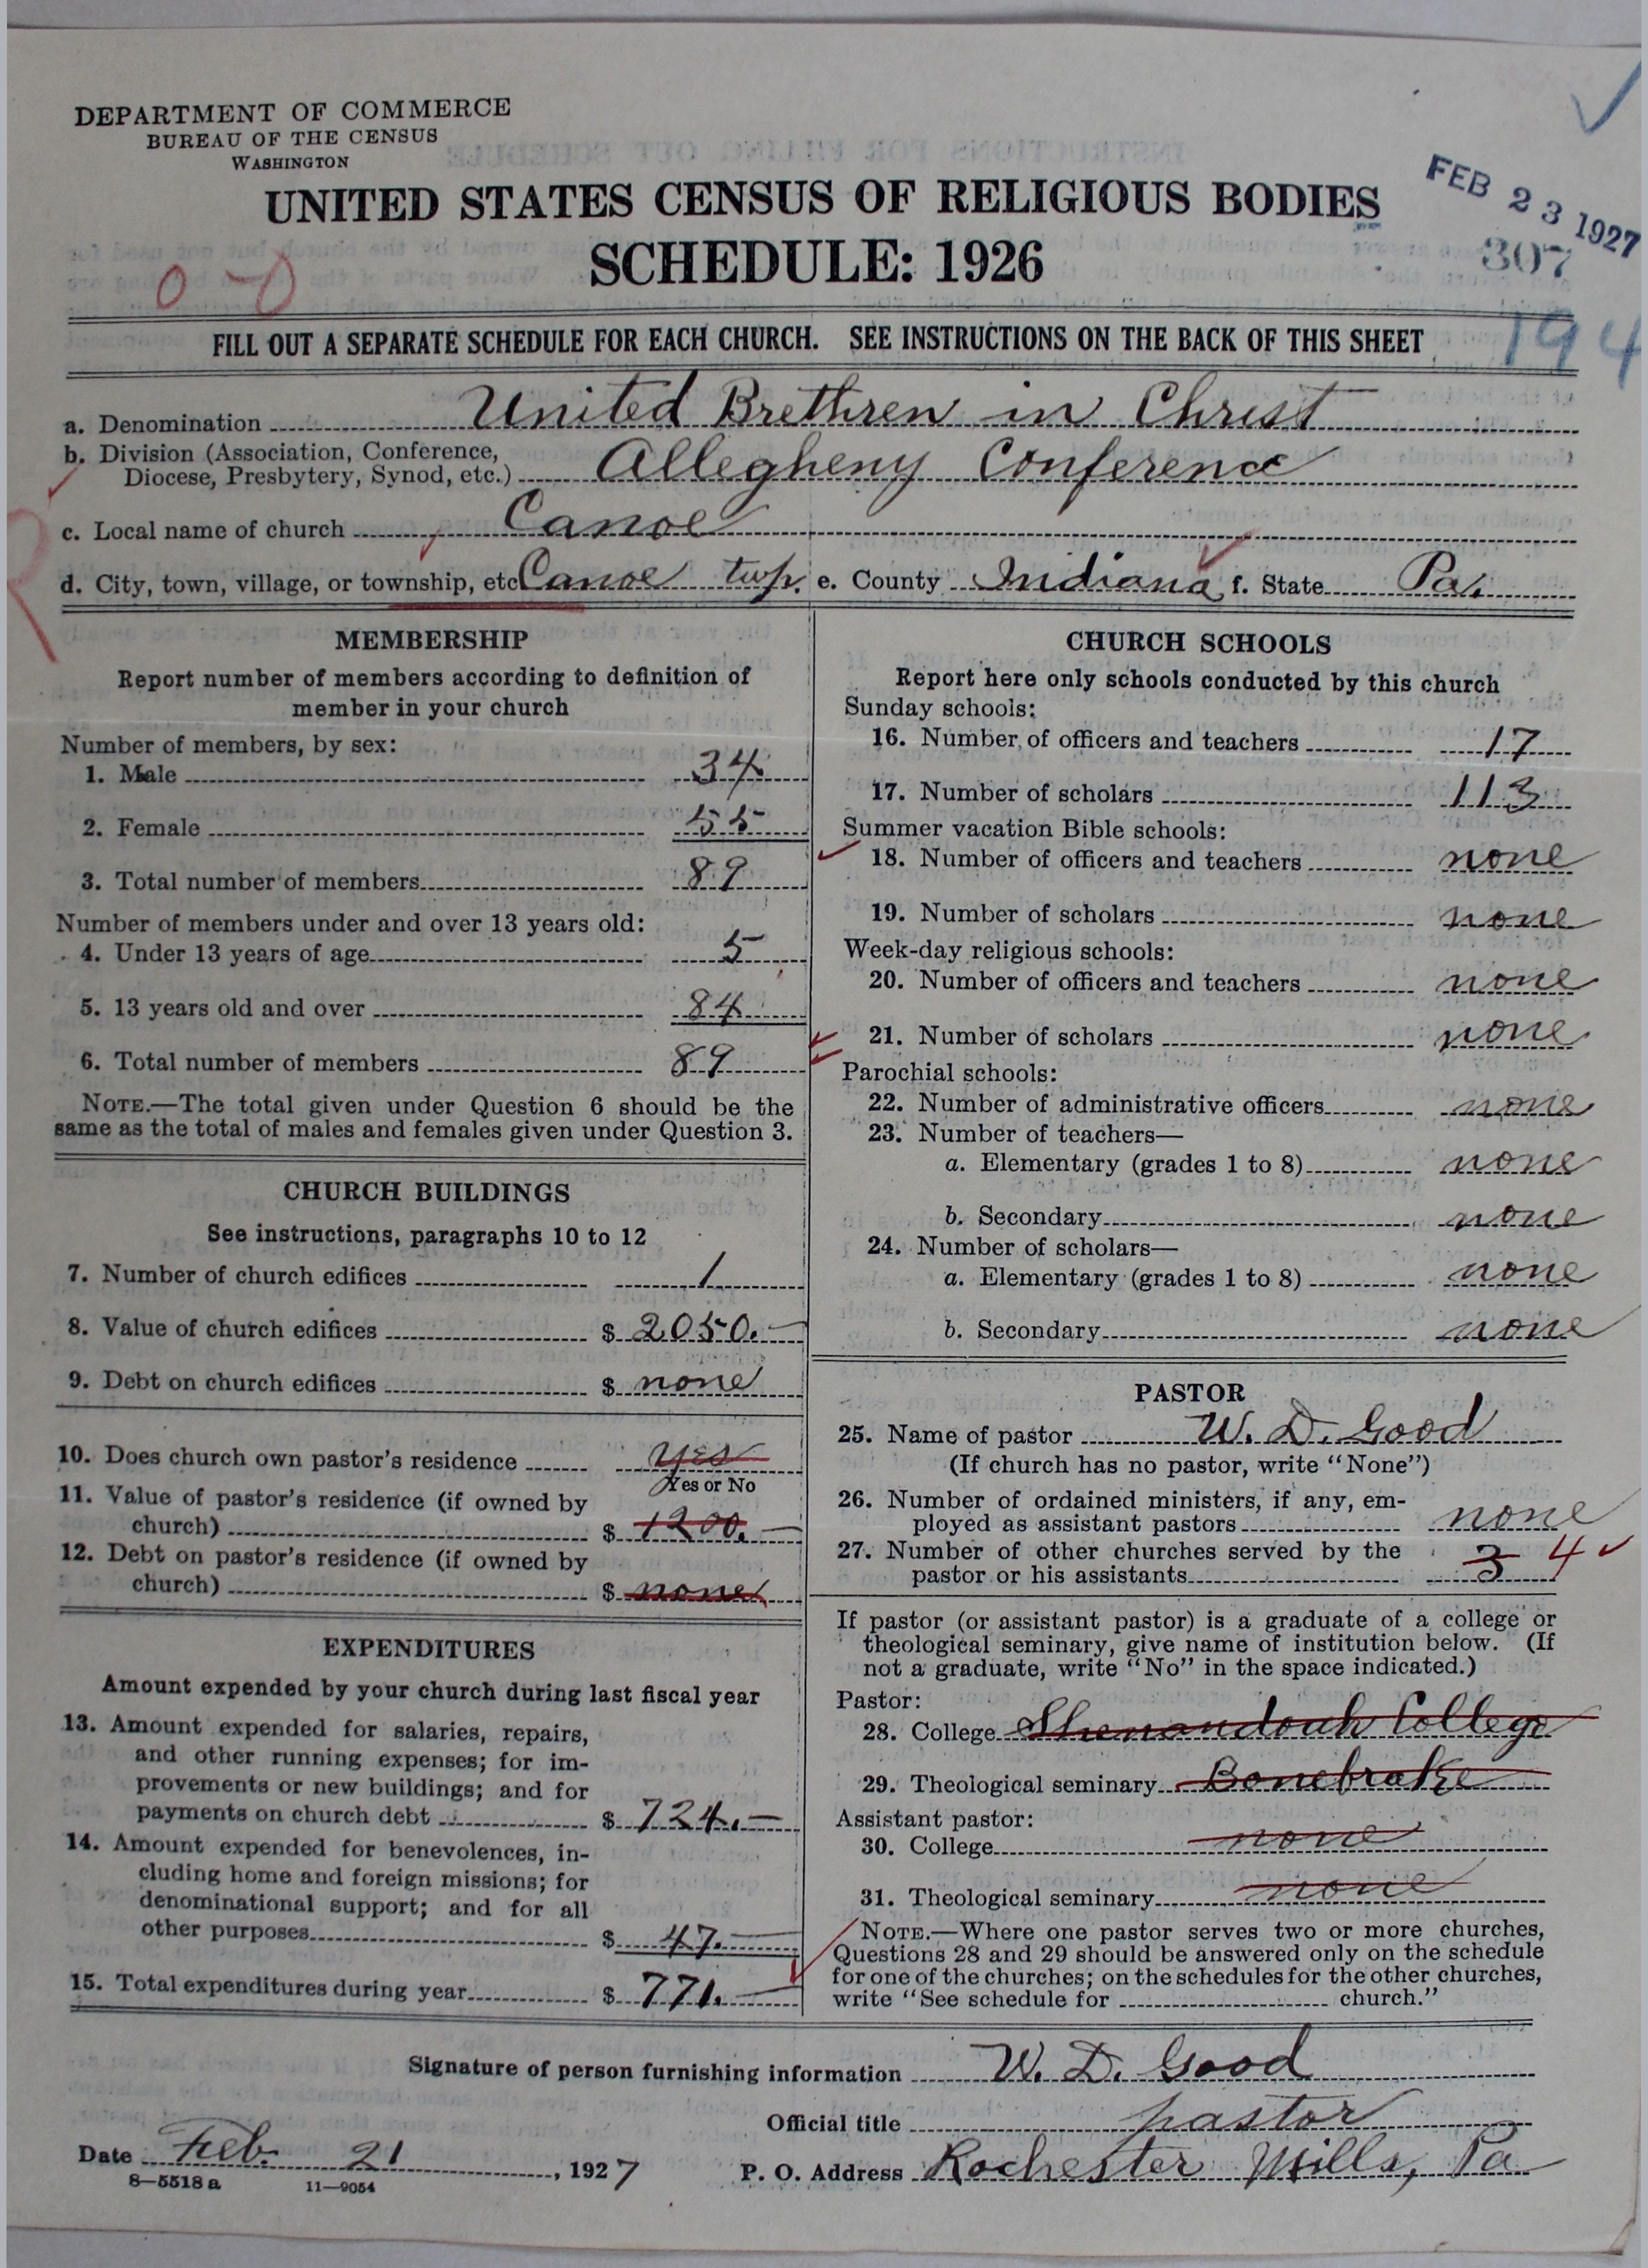 DEPARTMENT OF COMMERCE
BUREAU OF THE CENSUS
WASHINGTON
UNITED STATES CENSUS OF RELIGIOUS BODIES
SCHEDULE: 1926
FEB 23 1927
307
194
FILL OUT A SEPARATE SCHEDULE FOR EACH CHURCH. SEE INSTRUCTIONS ON THE BACK OF THIS SHEET
a. Denomination United Brethren in Christ
b. Division (Association, Conference,
Diocese, Presbytery, Synod, etc.) Allegheny Conference
c. Local name of church Canoe
d. City, town, village, or township, etc. Canoe twp. e. County Indiana f. State Pa.
MEMBERSHIP
Report number of members according to definition of
member in your church
Number of members, by sex:
1. Male 34
2. Female 55
3. Total number of members 89
Number of members under and over 13 years old:
4. Under 13 years of age 5
5. 13 years old and over 84
6. Total number of members 89
NOTE.—The total given under Question 6 should be the
same as the total of males and females given under Question 3.
CHURCH BUILDINGS
See instructions, paragraphs 10 to 12
7. Number of church edifices 1
8. Value of church edifices $ 2050.—
9. Debt on church edifices $ none
10. Does church own pastor's residence yes
Yes or No
11. Value of pastor's residence (if owned by
church) $ 1200.—
12. Debt on pastor's residence (if owned by
church) $ none
EXPENDITURES
Amount expended by your church during last fiscal year
13. Amount expended for salaries, repairs,
and other running expenses; for im-
provements or new buildings; and for
payments on church debt $ 724.—
14. Amount expended for benevolences, in-
cluding home and foreign missions; for
denominational support; and for all
other purposes $ 47.—
15. Total expenditures during year $ 771.—
CHURCH SCHOOLS
Report here only schools conducted by this church
Sunday schools:
16. Number of officers and teachers 17
17. Number of scholars 113
Summer vacation Bible schools:
18. Number of officers and teachers none
19. Number of scholars none
Week-day religious schools:
20. Number of officers and teachers none
21. Number of scholars none
Parochial schools:
22. Number of administrative officers none
23. Number of teachers—
a. Elementary (grades 1 to 8) none
b. Secondary none
24. Number of scholars—
a. Elementary (grades 1 to 8) none
b. Secondary none
PASTOR
25. Name of pastor W. D. Good
(If church has no pastor, write "None")
26. Number of ordained ministers, if any, em-
ployed as assistant pastors none
27. Number of other churches served by the
pastor or his assistants 3 4
If pastor (or assistant pastor) is a graduate of a college or
theological seminary, give name of institution below. (If
not a graduate, write "No" in the space indicated.)
Pastor:
28. College Shenandoah College
29. Theological seminary Bonebrake
Assistant pastor:
30. College none
31. Theological seminary none
NOTE.—Where one pastor serves two or more churches,
Questions 28 and 29 should be answered only on the schedule
for one of the churches; on the schedules for the other churches,
write "See schedule for church."
Signature of person furnishing information W. D. Good
Official title pastor
Date Feb. 21, 1927 P. O. Address Rochester Mills, Pa
8—5518 a 11—9054